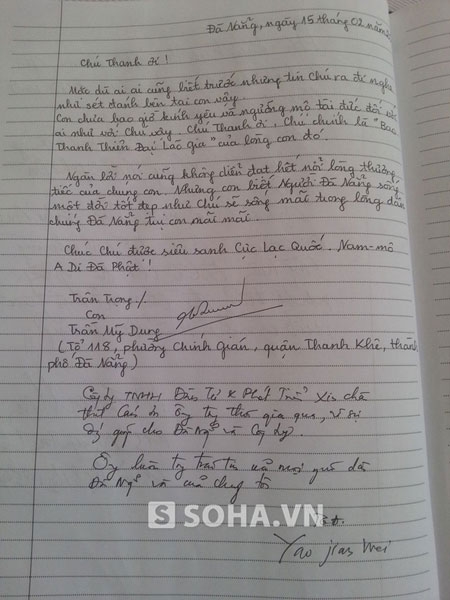 Đà Nẵng, ngày 15 tháng 02 năm
Chú Thanh ơi!
Mặc dù ai ai cũng biết trước nhưng tin Chú ra đi nghe
như sét đánh bên tai con vậy.
Con chưa bao giờ kính yêu và ngưỡng mộ tài đức đối với
ai như với Chú vậy. Chú Thanh ơi, Chú chính là "Bao
Thanh Thiên Đại Lão gia" của lòng con đó.
Ngàn lời nói cũng không diễn đạt hết nỗi lòng thương
tiếc của chúng con. Nhưng con biết Người Đà Nẵng sống
một đời tốt đẹp như Chú sẽ sống mãi trong lòng dân
chúng Đà Nẵng tụi con mãi mãi.
Chúc Chú được siêu sanh Cực Lạc Quốc. Nam-mô
A Di Đà Phật!
Trân Trọng/
Con
Trần Mỹ Dung
(Tổ 118, phường Chính Gián, quận Thanh Khê, thành
phố Đà Nẵng)
Cty TNHH Đầu Tư & Phát Triển xin
ông gia qua, vì sự
cho Đà Nẵng và Cty
Ông luôn
và của chúng tôi
SOHA.VN
Yao jian mei